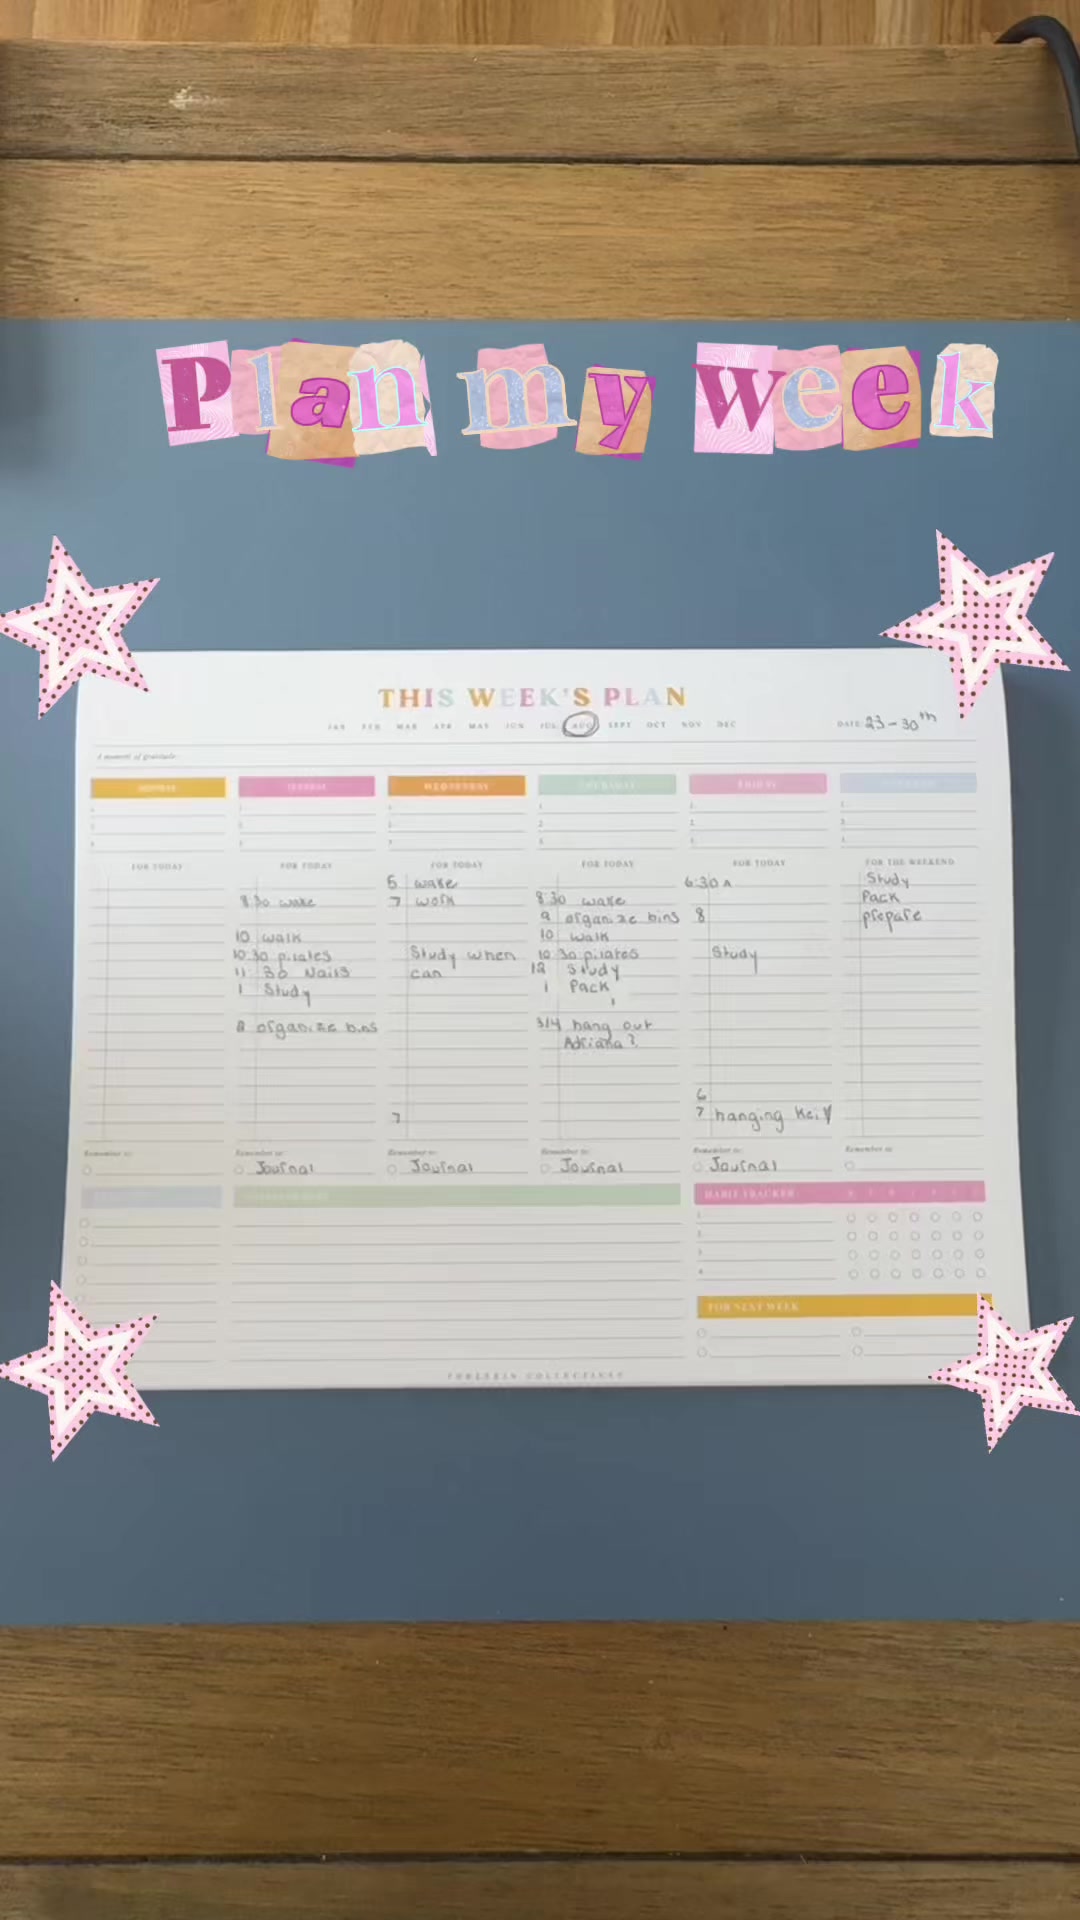 Plan my week
THIS WEEK'S PLAN
JAN FEB MAR APR MAY JUN JUL AUG SEPT OCT NOV DEC
DATE 23-30th
A moment of gratitude
MONDAY TUESDAY WEDNESDAY THURSDAY FRIDAY
1. 1. 1. 1. 1. 1.
2. 2. 2. 2. 2. 2.
3. 3. 3. 3. 3. 3.
FOR TODAY
FOR TODAY
8:30 wake
10 walk
10:30 pilates
11:30 Nails
1 Study
organize bins
FOR TODAY
5 wake
7 work
Study when
can
7
FOR TODAY
8:30 wake
9 organize bins
10 walk
10 30 pilates
12 Study
1 Pack
3/4 hang out
Adriana?
FOR TODAY
6:30 A
8
Study
6
7 hanging
FOR THE WEEKEND
Study
Pack
prepare
Remember to: Remember to: Remember to: Remember to: Remember to: Remember to:
Journal Journal Journal Journal
HABIT TRACKER
1.
2.
3.
4.
FOR NEXT WEEK